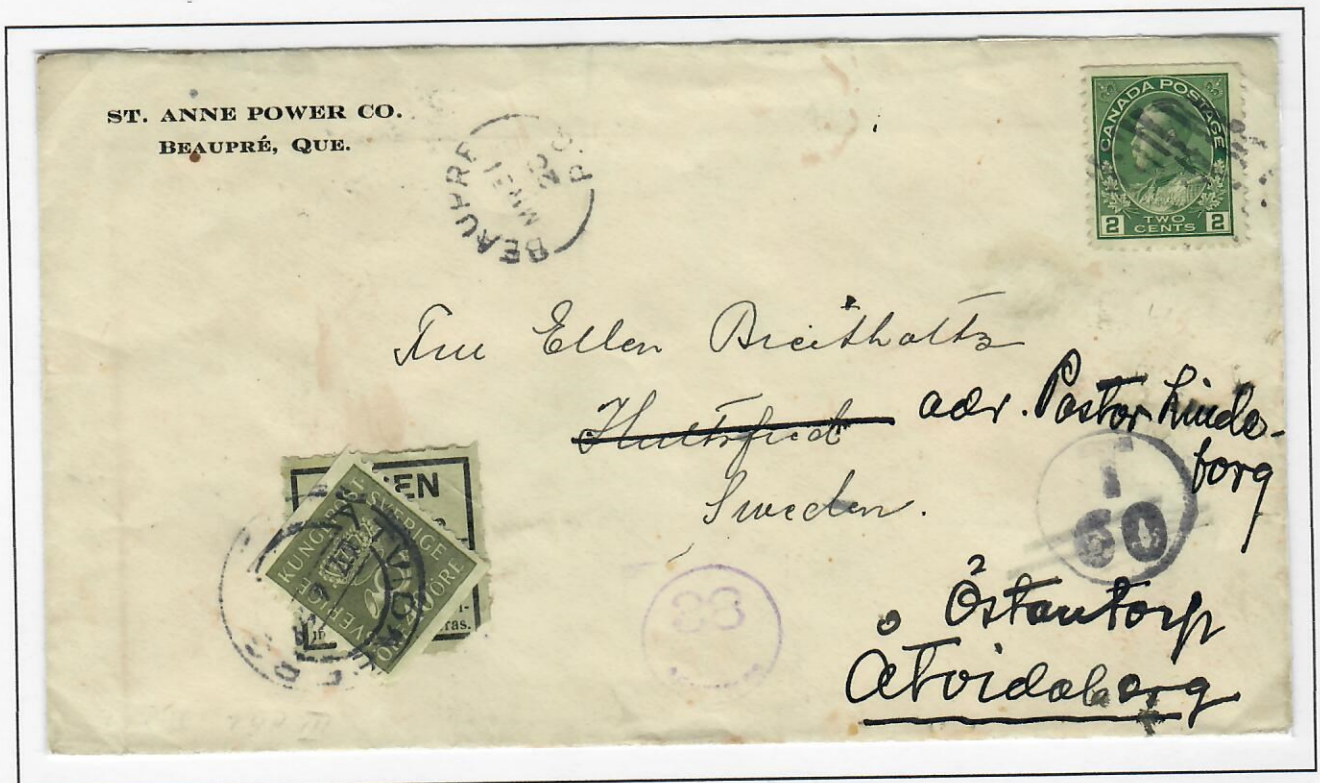 ST. ANNE POWER CO.
BEAUPRÉ, QUE.
BEAUPRE
MR 31
P. Q.
CANADA POSTAGE
2 TWO CENTS 2
Fru Ellen Breitholtz
Hultsfred adr. Pastor Linde-
borg
Sweden.
T
60
Östantorp
Åtvidaberg
SVERIGE
ÖRE
KUNGL. POST.
SVERIGE
33